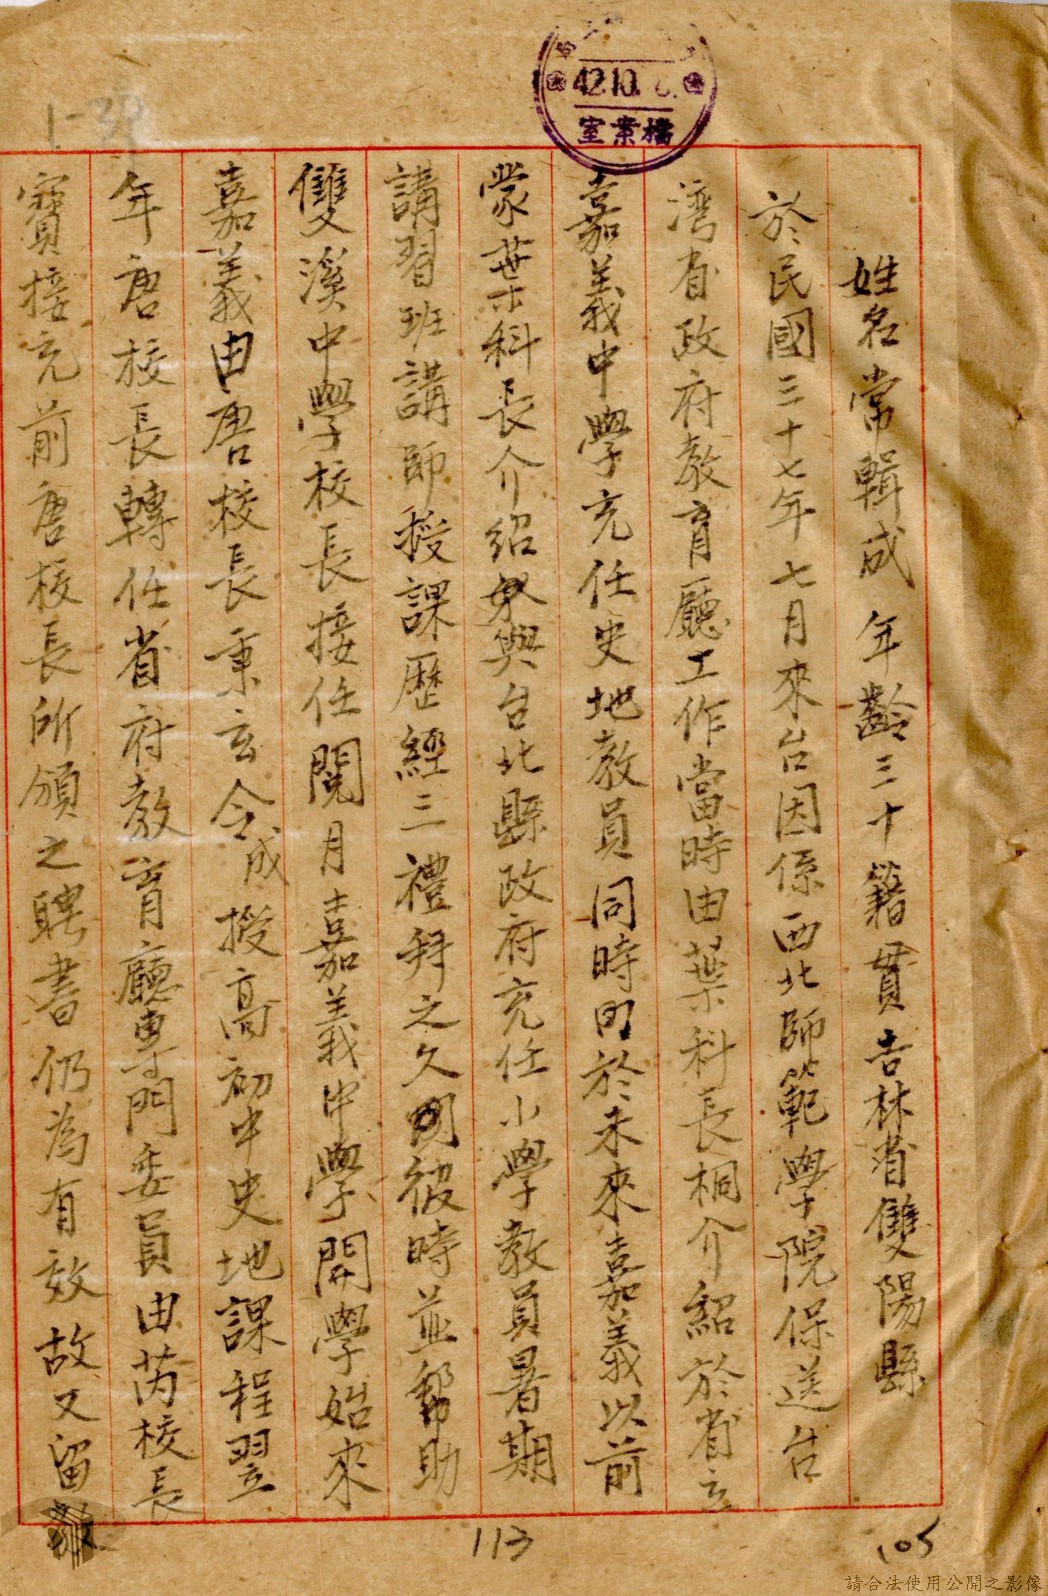 42.10.
檔案室
1-39
姓名常輯成 年齡三十籍貫吉林省雙陽縣
於民國三十七年七月來台因係西北師範學院保送台
湾省政府教育廳工作當時由葉科長桐介紹於省立
嘉義中學充任史地教員同時間於未來嘉義以前
蒙葉科長介紹與台北縣政府充任小學教員暑期
講習班講師授課歷經三禮拜之久同彼時並幫助
雙溪中學校長接任閱月嘉義中學開學始來
嘉義由唐校長秉玄令成授高初中史地課程翌
年唐校長轉任省府教育廳專門委員由芮校長
寶接充前唐校長所頒之聘書仍為有效故又留
113
105
請合法使用公開之影像